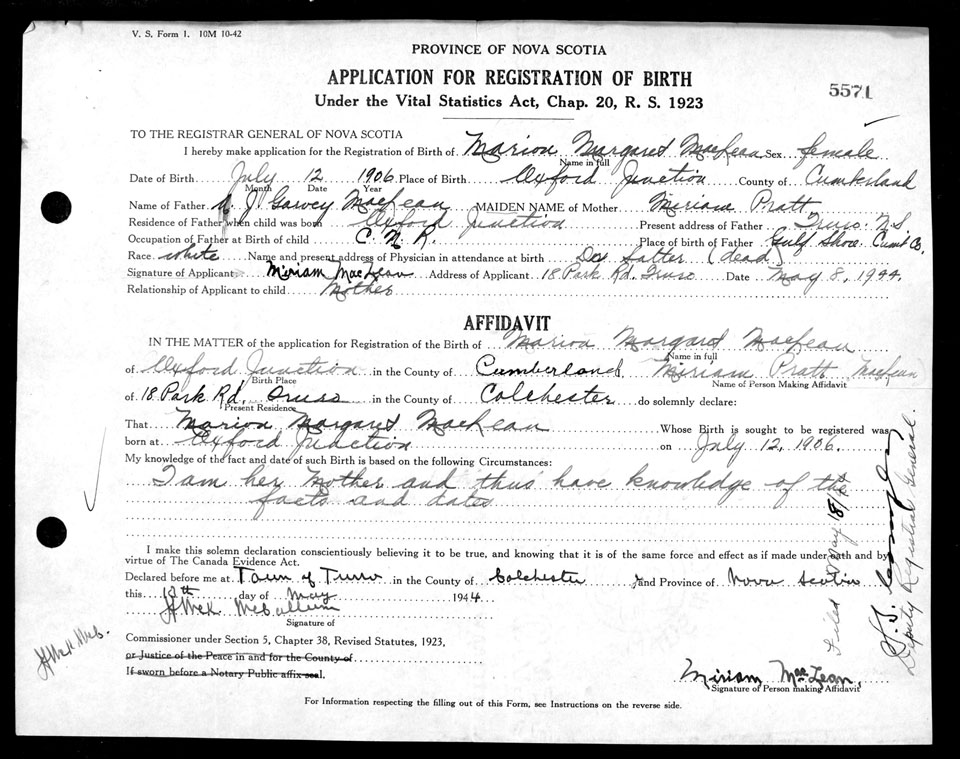 V. S. Form 1. 10M 10-42
PROVINCE OF NOVA SCOTIA
APPLICATION FOR REGISTRATION OF BIRTH
5571
Under the Vital Statistics Act, Chap. 20, R. S. 1923
TO THE REGISTRAR GENERAL OF NOVA SCOTIA
I hereby make application for the Registration of Birth of Marion Margaret MacLean Sex female
Name in full
Date of Birth July 12 1906 Place of Birth Oxford Junction County of Cumberland
Month Date Year
Name of Father J. Garvey MacLean MAIDEN NAME of Mother Miriam Pratt
Residence of Father when child was born Oxford Junction Present address of Father Truro N.S.
Occupation of Father at Birth of child C. N. R. Place of birth of Father Gulf Shore Cumb. Co.
Race white Name and present address of Physician in attendance at birth (dead)
Signature of Applicant Miriam MacLean Address of Applicant 18 Park Rd. Truro Date May 8, 1944.
Relationship of Applicant to child Mother
AFFIDAVIT
IN THE MATTER of the application for Registration of the Birth of Marion Margaret MacLean
Name in full
of Oxford Junction in the County of Cumberland Miriam Pratt MacLean
Birth Place Name of Person Making Affidavit
of 18 Park Rd. Truro in the County of Colchester do solemnly declare:
Present Residence
That Marion Margaret MacLean Whose Birth is sought to be registered was
born at Oxford Junction on July 12, 1906.
My knowledge of the fact and date of such Birth is based on the following Circumstances:
I am her Mother and thus have knowledge of the
facts and dates
I make this solemn declaration conscientiously believing it to be true, and knowing that it is of the same force and effect as if made under oath and by
virtue of The Canada Evidence Act.
Declared before me at Town of Truro in the County of Colchester and Province of Nova Scotia
this 12th day of May 1944
McCallum
Signature of
Commissioner under Section 5, Chapter 38, Revised Statutes, 1923,
or Justice of the Peace in and for the County of
If sworn before a Notary Public affix seal.
Miriam MacLean.
Signature of Person making Affidavit
For Information respecting the filling out of this Form, see Instructions on the reverse side.
Filed May 18/44
Deputy Registrar General.